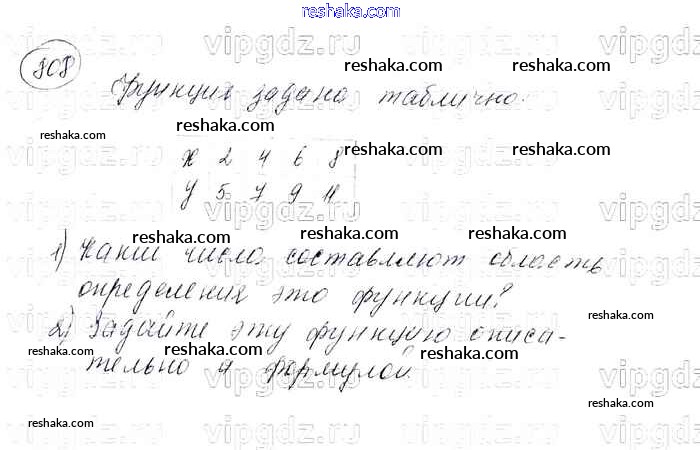 reshaka.com
808
Функция задана таблично.
x 2 4 6 8
y 5 7 9 11
1) Какие числа составляют область
определения это функции?
2) Задайте эту функцию описа-
тельно и формулой.